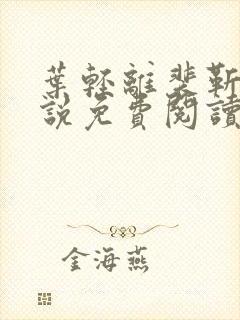 葉輕離裴靳
說免費閱讀
金海燕